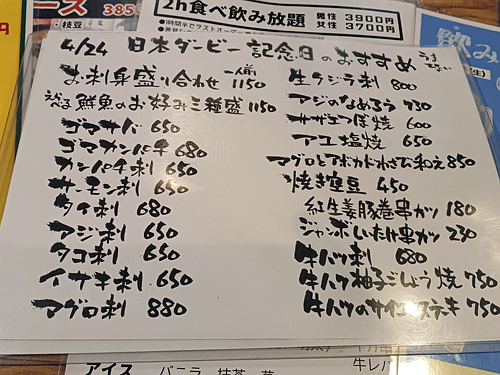 ース 385
枝豆
2h食べ飲み放題 男性 3900円
女性 3700円
4/24 日本ダービー記念日のおすすめ
お刺身盛り合わせ 一人前 1150
鮮魚のお好み三種盛 1150
ゴマサバ 650
ゴマカンパチ 680
カンパチ刺 650
サーモン刺 650
タイ刺 680
アジ刺 650
タコ刺 650
イサキ刺 650
マグロ刺 880
生クジラ刺 800
アジのなめろう 730
サザエつぼ焼 600
アユ塩焼 650
マグロとアボカドわさび和え 850
焼き空豆 450
紅生姜豚巻串カツ 180
ジャンボしいたけ串カツ 230
牛ハツ刺 680
牛ハツ柚子こしょう焼 750
牛ハツのサイコロステーキ 750
アイス バニラ 抹茶
牛レバ